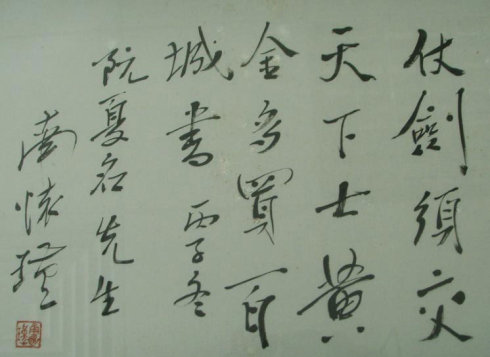 仗劍須交
天下士黃
金多買百
城書 丙子冬
阮夏先生
南懷瑾